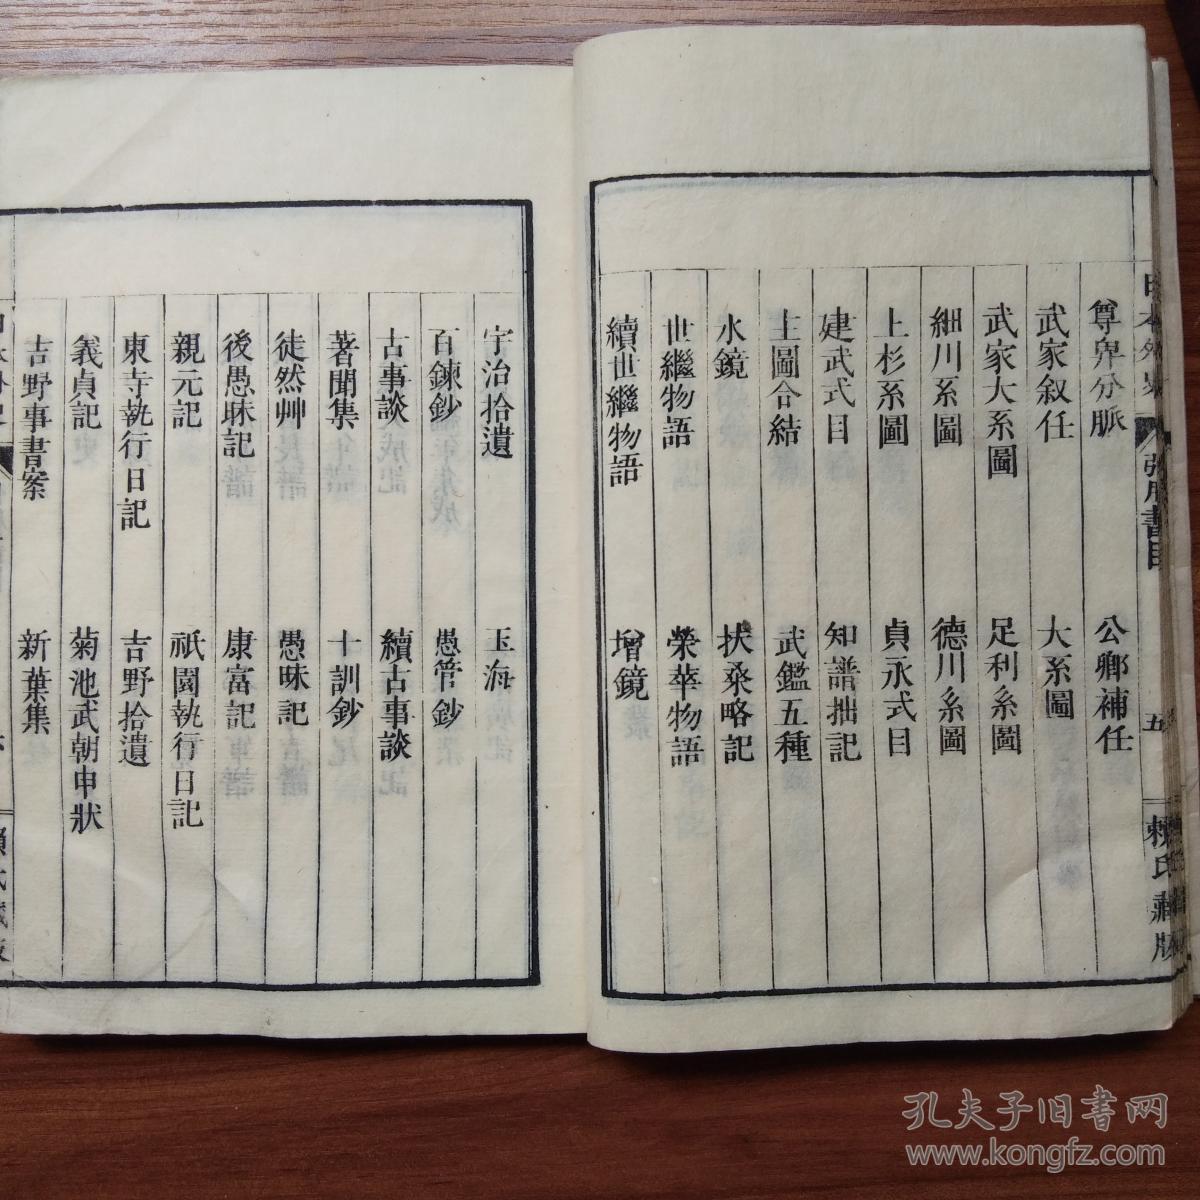 尊卑分脈　公卿補任
武家叙任　大系圖
武家大系圖　足利系圖
細川系圖　德川系圖
上杉系圖　貞永式目
建武式目　知譜拙記
主圖合結　武鑑五種
水鏡　扶桑略記
世繼物語　榮華物語
續世繼物語　增鏡
引用書目
五
賴氏藏版
宇治拾遺　玉海
百鍊鈔　愚管鈔
古事談　續古事談
著聞集　十訓鈔
徒然艸　愚昧記
後愚昧記　康富記
親元記　祇園執行日記
東寺執行日記　吉野拾遺
義貞記　菊池武朝申狀
吉野事書案　新葉集
孔夫子旧书网
www.kongfz.com